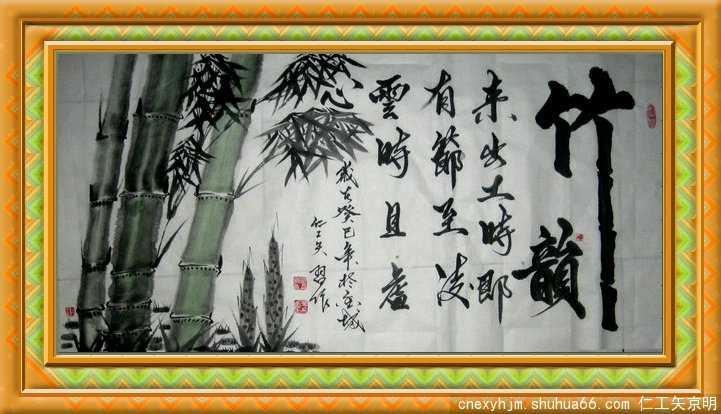 竹韻
未出土時即
有節至凌
雲時且虛
心
歲在癸巳年於京城
仁工矢習作
cnexyhjm.shuhua66.com 仁工矢京明